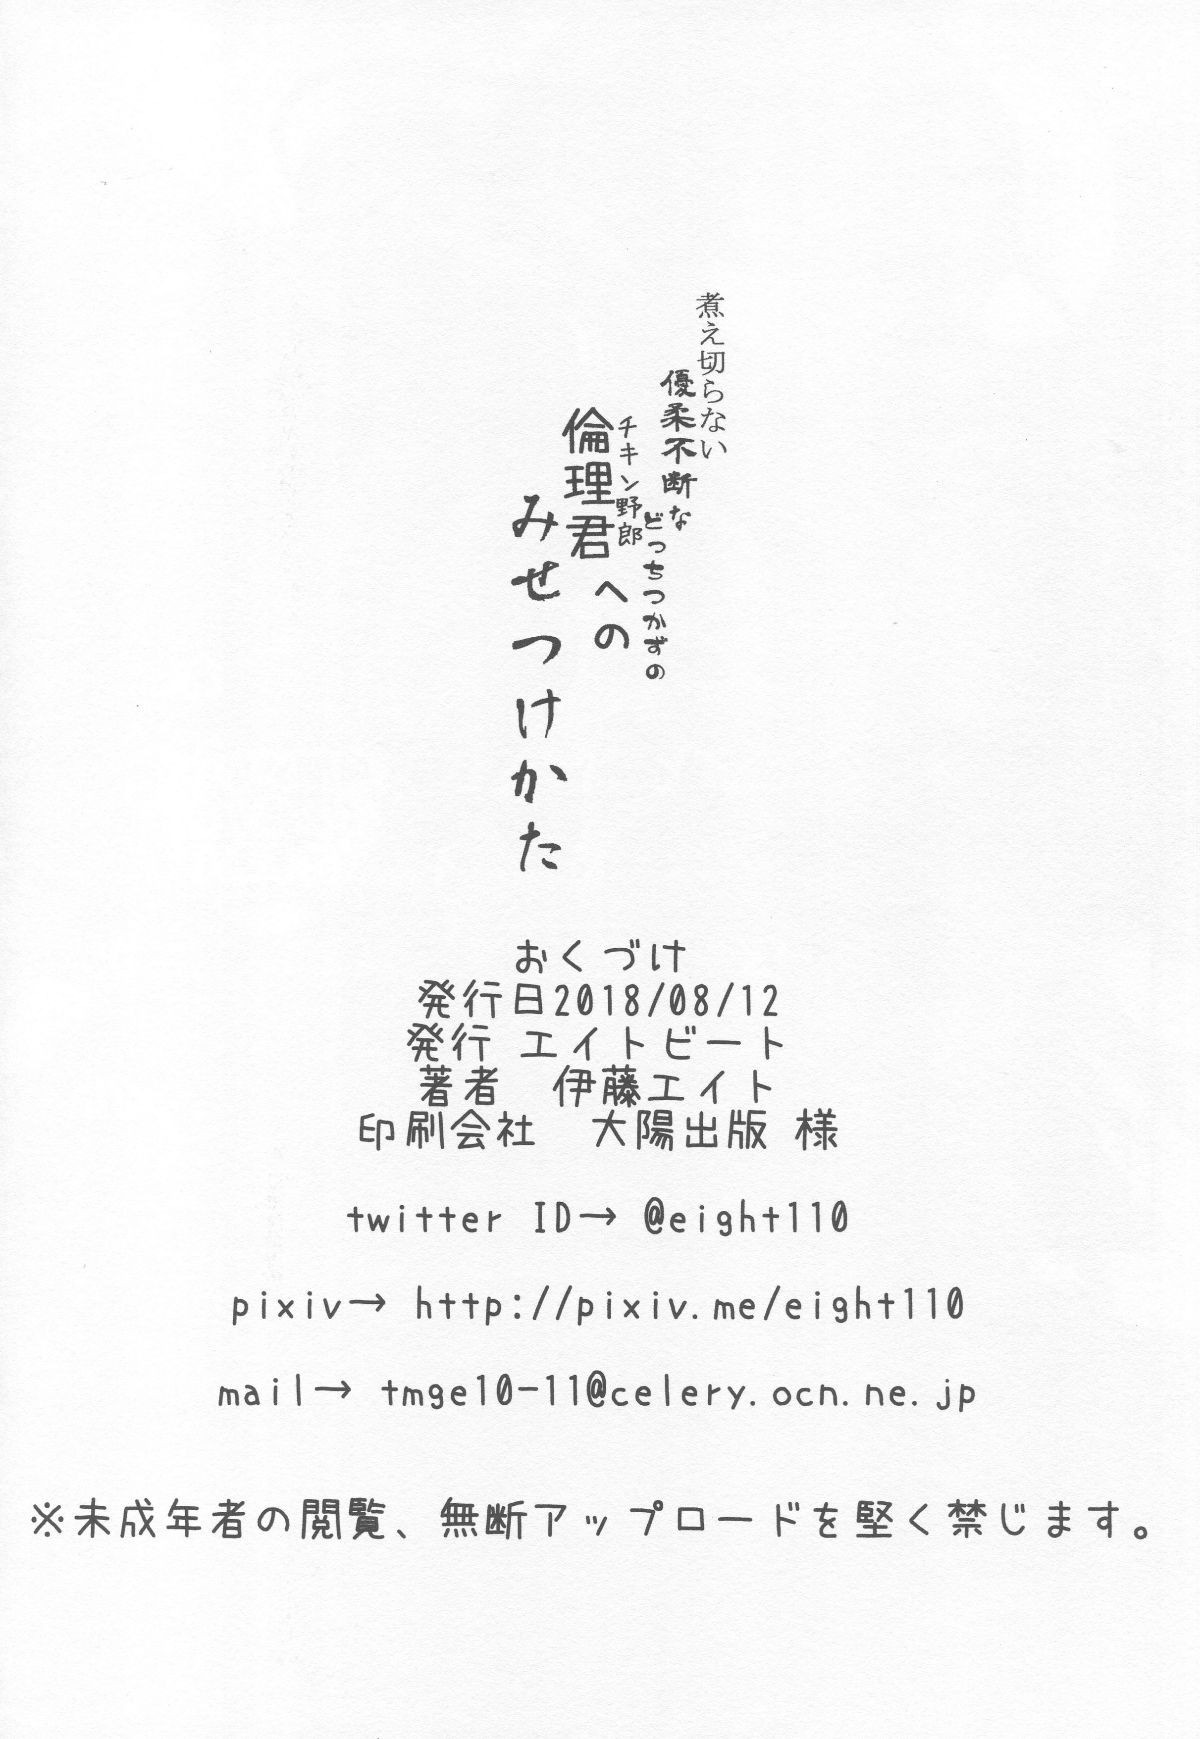 煮え切らない
優柔不断な
どっちつかずの
チキン野郎
倫理君への
みせつけかた
おくづけ
発行日2018/08/12
発行 エイトビート
著者　伊藤エイト
印刷会社　大陽出版 様
twitter ID→ @eight110
pixiv→ http://pixiv.me/eight110
mail→ tmge10-11@celery.ocn.ne.jp
※未成年者の閲覧、無断アップロードを堅く禁じます。